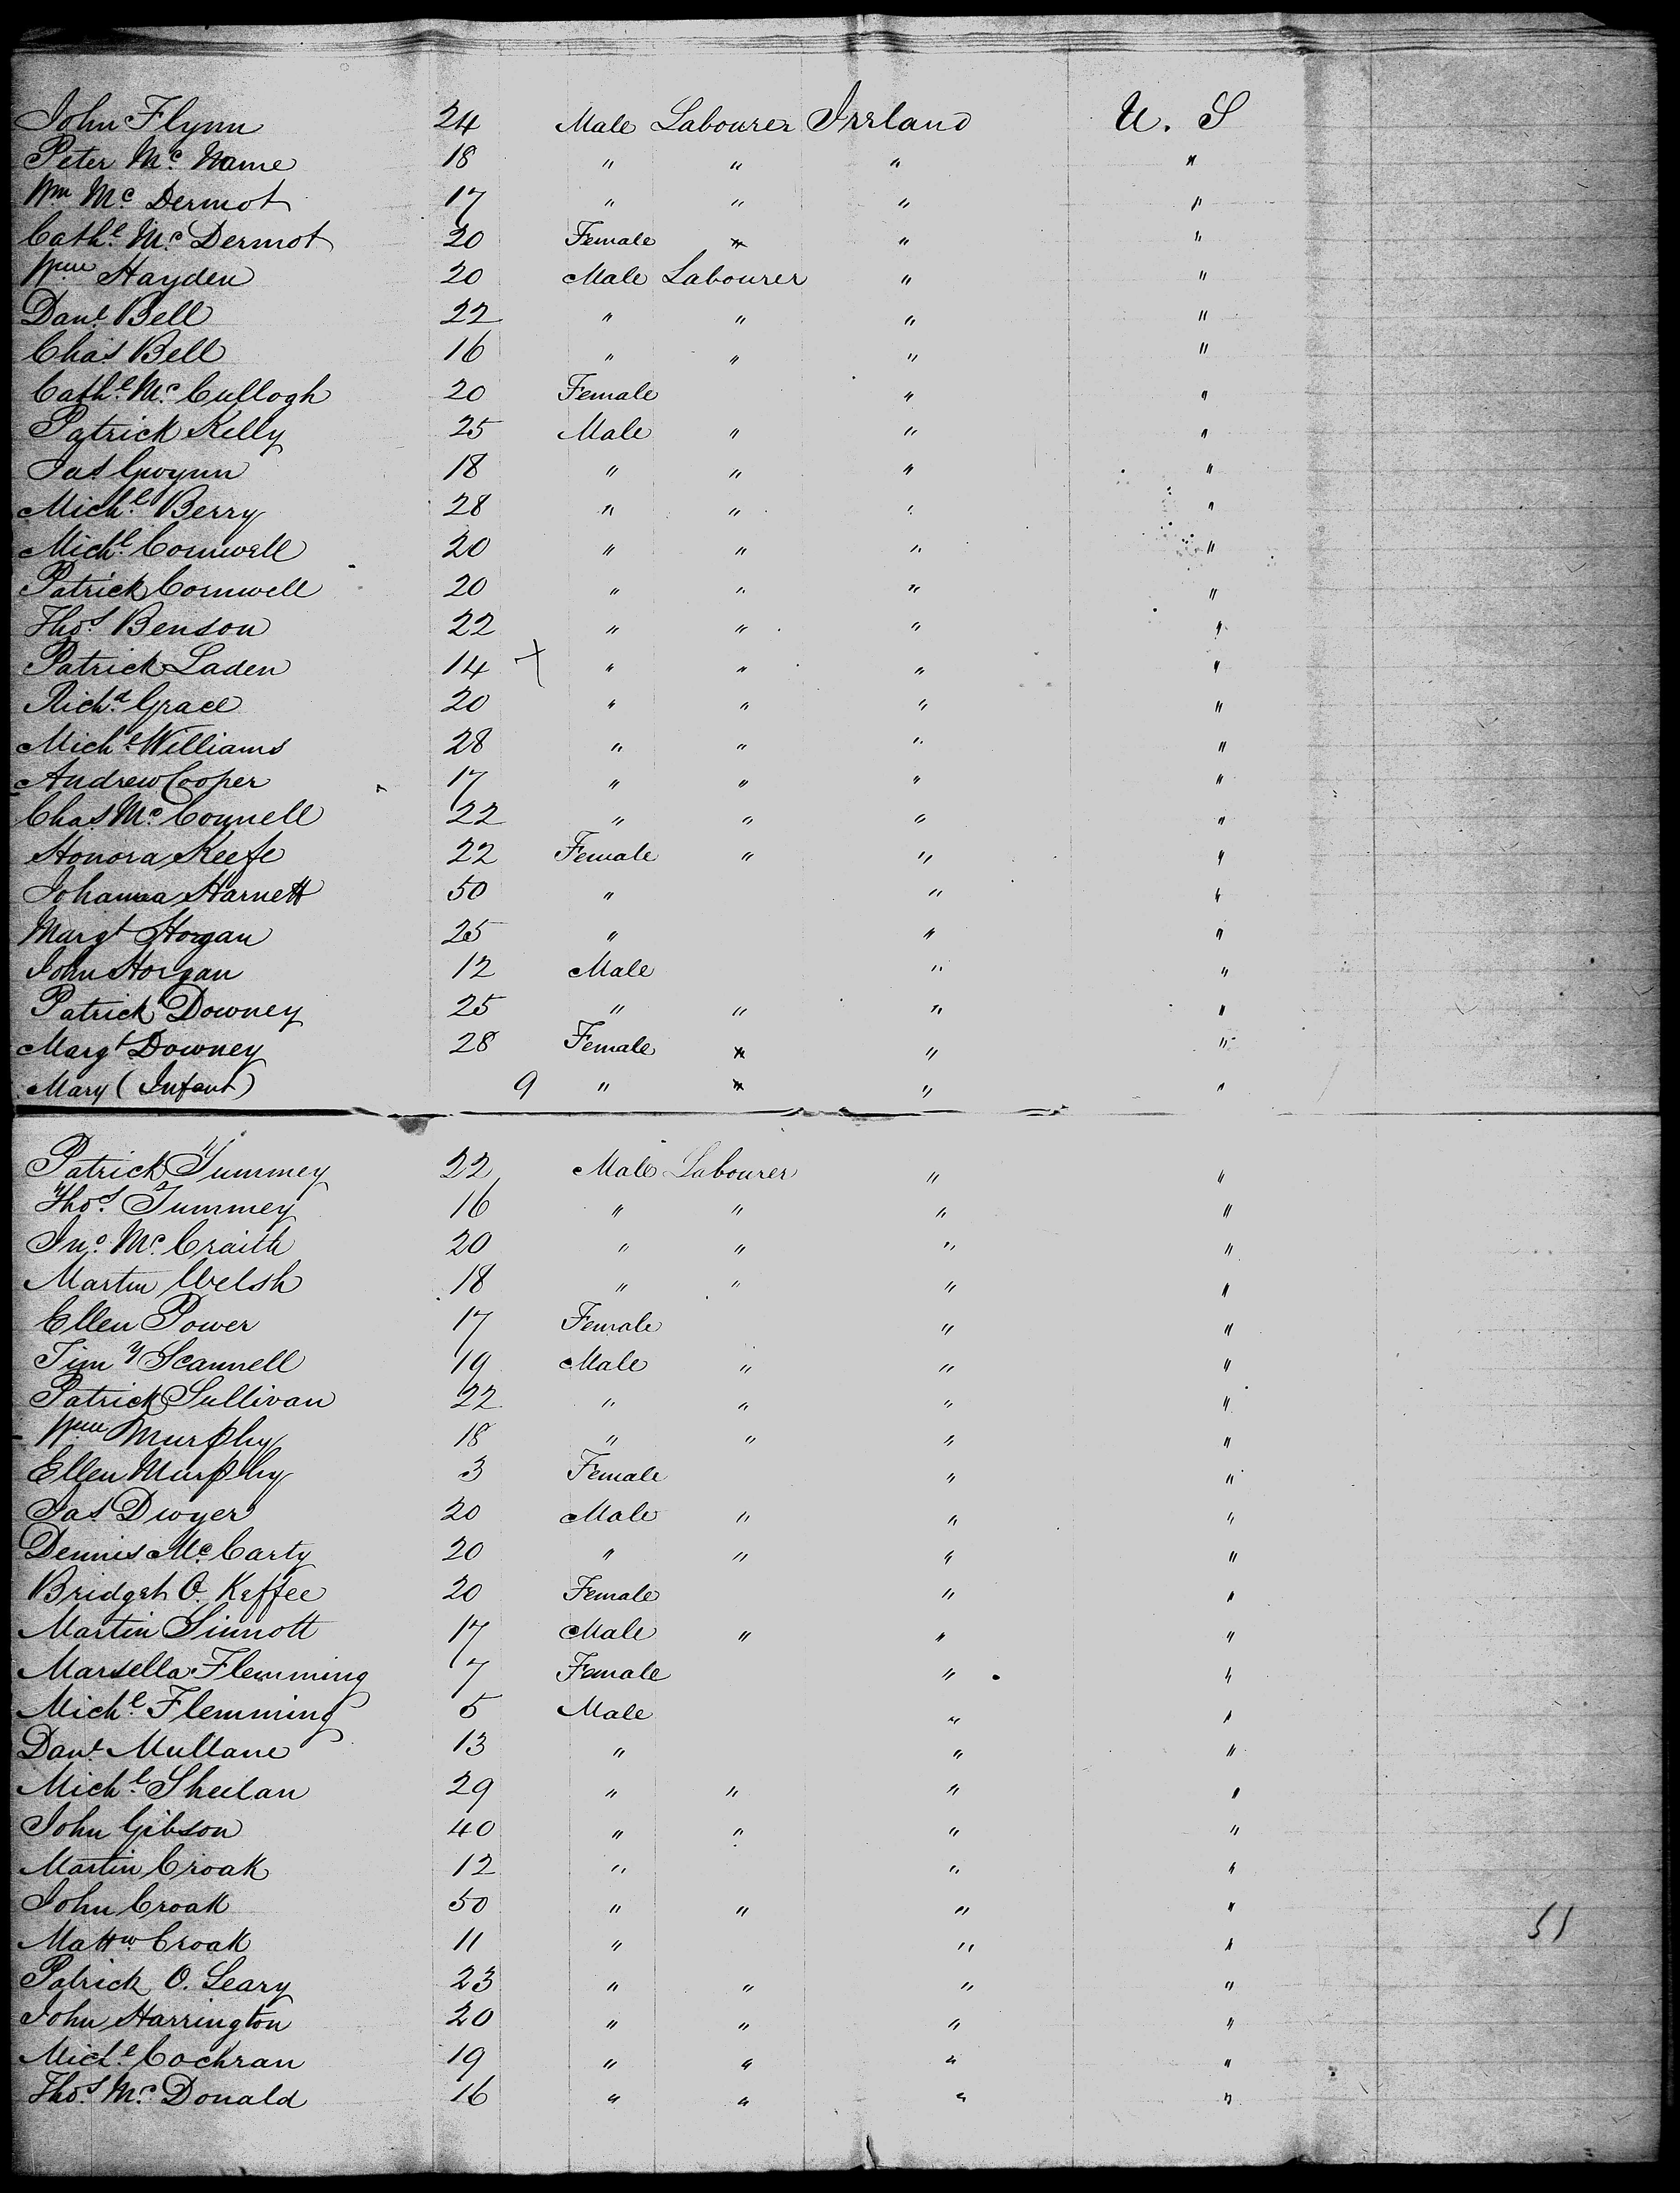 John Flynn 24 Male Labourer Ireland U. S
Peter Mc Name 18 " " " "
Wm Mc Dermot 17 " " " "
Cathe Mc Dermot 20 Female " " "
Wm Hayden 20 Male Labourer " "
Danl Bell 22 " " " "
Chas Bell 16 " " " "
Cathe Mc Cullogh 20 Female " "
Patrick Kelly 25 Male " " "
Jas Gwynn 18 " " " "
Michl Berry 28 " " " "
Michl Cornwell 20 " " " "
Patrick Cornwell 20 " " " "
Thos Benson 22 " " " "
Patrick Laden 14 + " " " "
Richd Grace 20 " " " "
Michl Williams 28 " " " "
Andrew Cooper 17 " " " "
Chas Mc Connell 22 " " " "
Honora Keefe 22 Female " " "
Johanna Harnett 50 " " "
Margt Horgan 25 " " "
John Horgan 12 Male " "
Patrick Downey 25 " " " "
Margt Downey 28 Female " " "
Mary (Infant) 9 " " " "
Patrick Tummey 22 Male Labourer " "
Thos Tummey 16 " " " "
Jno Mc Craith 20 " " " "
Martin Welsh 18 " " " "
Ellen Power 17 Female " "
Timy Scannell 19 Male " " "
Patrick Sullivan 22 " " " "
Wm Murphy 18 " " " "
Ellen Murphy 3 Female " "
Jas Dwyer 20 Male " " "
Dennis Mc Carty 20 " " " "
Bridget O. Keffee 20 Female " "
Martin Sinnott 17 Male " " "
Marsella Flemming 7 Female " "
Michl Flemming 5 Male " "
Danl Mullane 13 " " "
Michl Sheelan 29 " " " "
John Gibson 40 " " " "
Martin Croak 12 " " "
John Croak 50 " " " "
Mattw Croak 11 " " " 51
Patrick O. Leary 23 " " " "
John Harrington 20 " " " "
Michl Cochran 19 " " " "
Thos Mc Donald 16 " " " "